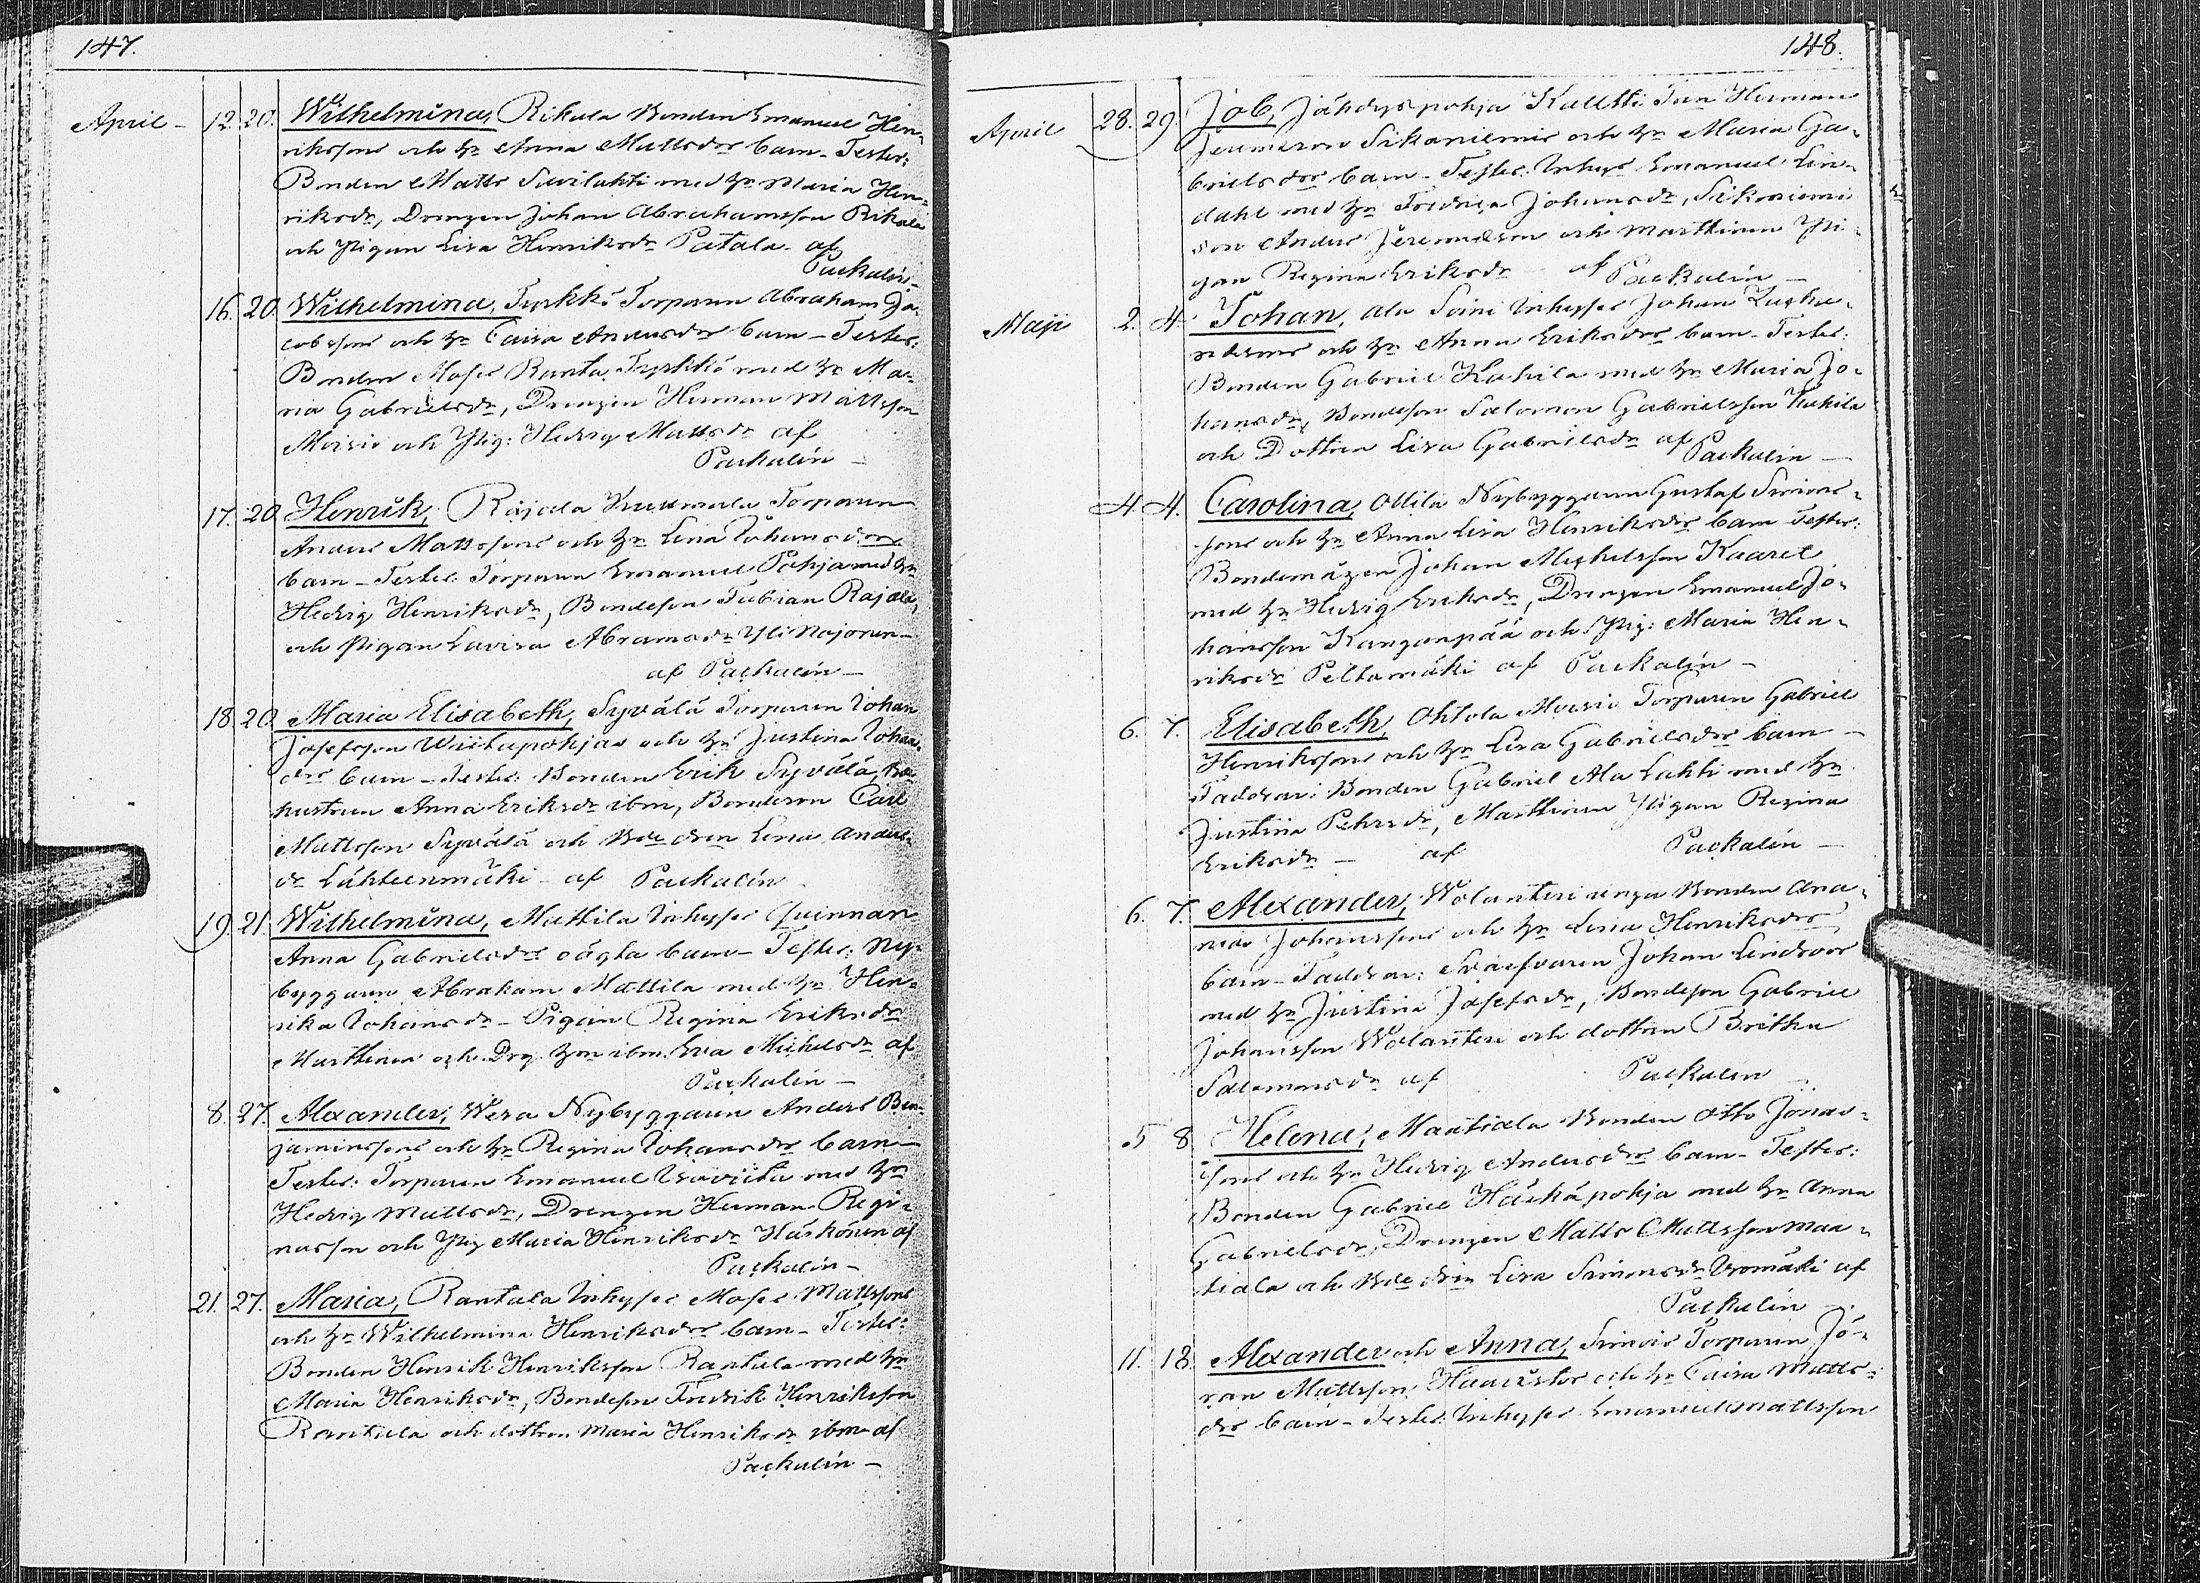 147.
April - 12. 20. Wilhelmina, Rikala Bonden Emanuel Hen-
rikssons och hu Anna Mattsdrs barn - Testes:
Bonden Matts Savilahti med hu Maria Hen-
riksdr, Drengen Johan Abrahamsson Rikala
och Pigan Lisa Henriksdr Patala - af
Packalén -
16. 20. Wilhelmina, Tyrkkö Torparen Abraham Ja-
cobssons och hu Caisa Andersdrs barn - Testes:
Bonden Moses Ranta Tyrkkö med hu Ma-
ria Gabrielsdr, Drengen Herman Mattsson
Moisio och Pig: Hedvig Mattsdr af
Packalén -
17. 20. Henrik, Rajala Torparen
Anders Mattssons och hu Lena Johansdrs
barn - Testes: Torparen Emanuel Pohja med hu
Hedvig Henriksdr, Bondeson Fabian Rajala,
och Pigan Lovisa Abramsdr Yli Nojonen -
af Packalén -
18. 20. Maria Elisabeth, Syvälä Torparen Johan
Josefsson Wiitapohjas och hu Justina Johans-
drs barn - Testes: Bonden Erik Syvälä, Bde
hustrun Anna Eriksdr ibm, Bondeson Carl
Mattsson Syvälä och Bde drn Lena Anders-
dr Lähteenmäki - af Packalén
19. 21. Wilhelmina, Mattila Inhyses Quinnan
Anna Gabrielsdrs oägta barn - Testes: Ny-
byggaren Abraham Mattila med hu Hen-
rika Johansdr - Pigan Regina Eriksdr
Marttinen och Drg. hun ibm. Eva Michelsdr af
Packalén -
8. 27. Alexander, Wera Nybyggaren Anders Ben-
jaminssons och hu Regina Johansdrs barn -
Testes: Torparen Emanuel med hu
Hedvig Mattsdr, Drengen Herman Regi-
nasson och Pig Maria Henriksdr Häskönen af
Packalén -
21. 27. Maria, Rantala Inhyses Moses Mattssons
och hu Wilhelmina Henriksdrs barn - Testes:
Bonden Henrik Henriksson Rantala med hu
Maria Henriksdr, Bondeson Fredrik Henriksson
Rantala och dottren Maria Henriksdr ibm af
Packalén -
148.
April 28. 29. Job, Jähdyspohja Kultti Herman
Jeremiesson Sikaniemis och hu Maria Ga-
brielsdrs barn - Testes: Inhyses Emanuel Lin-
dahl med hu Fredrica Johansdr, Sikaniemi
son Anders Jeremiesson och Marttinen Pi-
gan Regina Eriksdr af Packalén -
Maji 2. 4. Johan, Ala Soini Inhyses Johan
och hu Anna Eriksdrs barn - Testes:
Bonden Gabriel Kahila med hu Maria Jo-
hansdr, Bondeson Salomon Gabrielsson Kahila
och Dottren Lisa Gabrielsdr af Packalén -
4 4. Carolina, Ollila Nybyggaren Gustaf Simons-
sons och hu Anna Lisa Henriksdrs barn Testes:
Bondemågen Johan Michelsson Kaaret
med hu Hedvig Eriksdr, Drengen Emanuel Jo-
hansson Kangaspää och Pig: Maria Hen-
riksdr Peltomäki af Packalén -
6. 7. Elisabeth, Ohtola Moisio Torparen Gabriel
Henrikssons och hu Lisa Gabrielsdrs barn -
Faddrar: Bonden Gabriel Ala Lahti med hu
Justina Pehrsdr, Marttinen Pigan Regina
Eriksdr - af Packalén -
6. 7. Alexander, Wolanteri unga Bonden Ana-
nias Johanssons och hu Lena Henriksdrs
barn - Faddrar: Svarfvaren Johan Lindroos
med hu Justina Josefsdr, Bondeson Gabriel
Johansson Wolanteri och dottren Britha
Salomonsdr af Packalén
5 8 Helena, Maatiala Bonden Otto Jonas-
sons och hu Hedvig Andersdrs barn - Testes:
Bonden Gabriel Häskäpohja med hu Anna
Gabrielsdr, Drengen Matts Mattsson Maa-
tiala och Bde drn Lisa Simonsdr Uromäki af
Packalén -
11. 18. Alexander och Anna, Simois Torparen Jö-
ran Mattsson och hu Caisa Matts-
drs barn - Testes: Inhyses Emanuel Mattsson